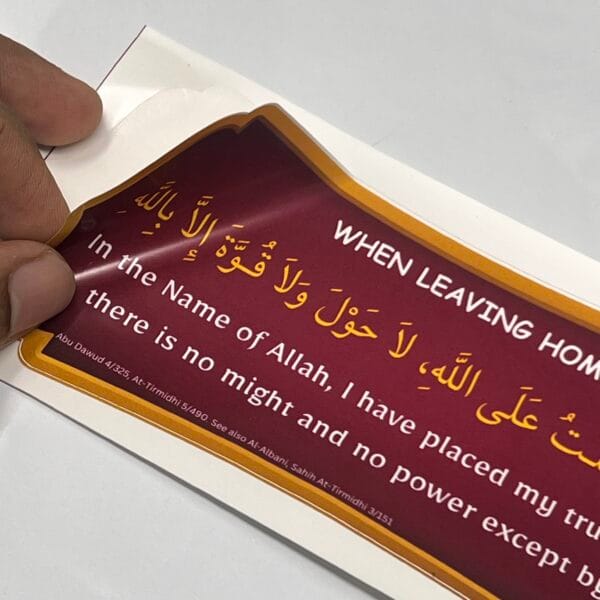 WHEN LEAVING HOM
عَلَى اللَّهِ، لاَ حَوْلَ وَلاَ قُوَّةَ إِلاَّ بِاللَّهِ
In the Name of Allah, I have placed my tru
there is no might and no power except by
Abu Dawud 4/325, At-Tirmidhi 5/490. See also Al-Albani, Sahih At-Tirmidhi 3/151